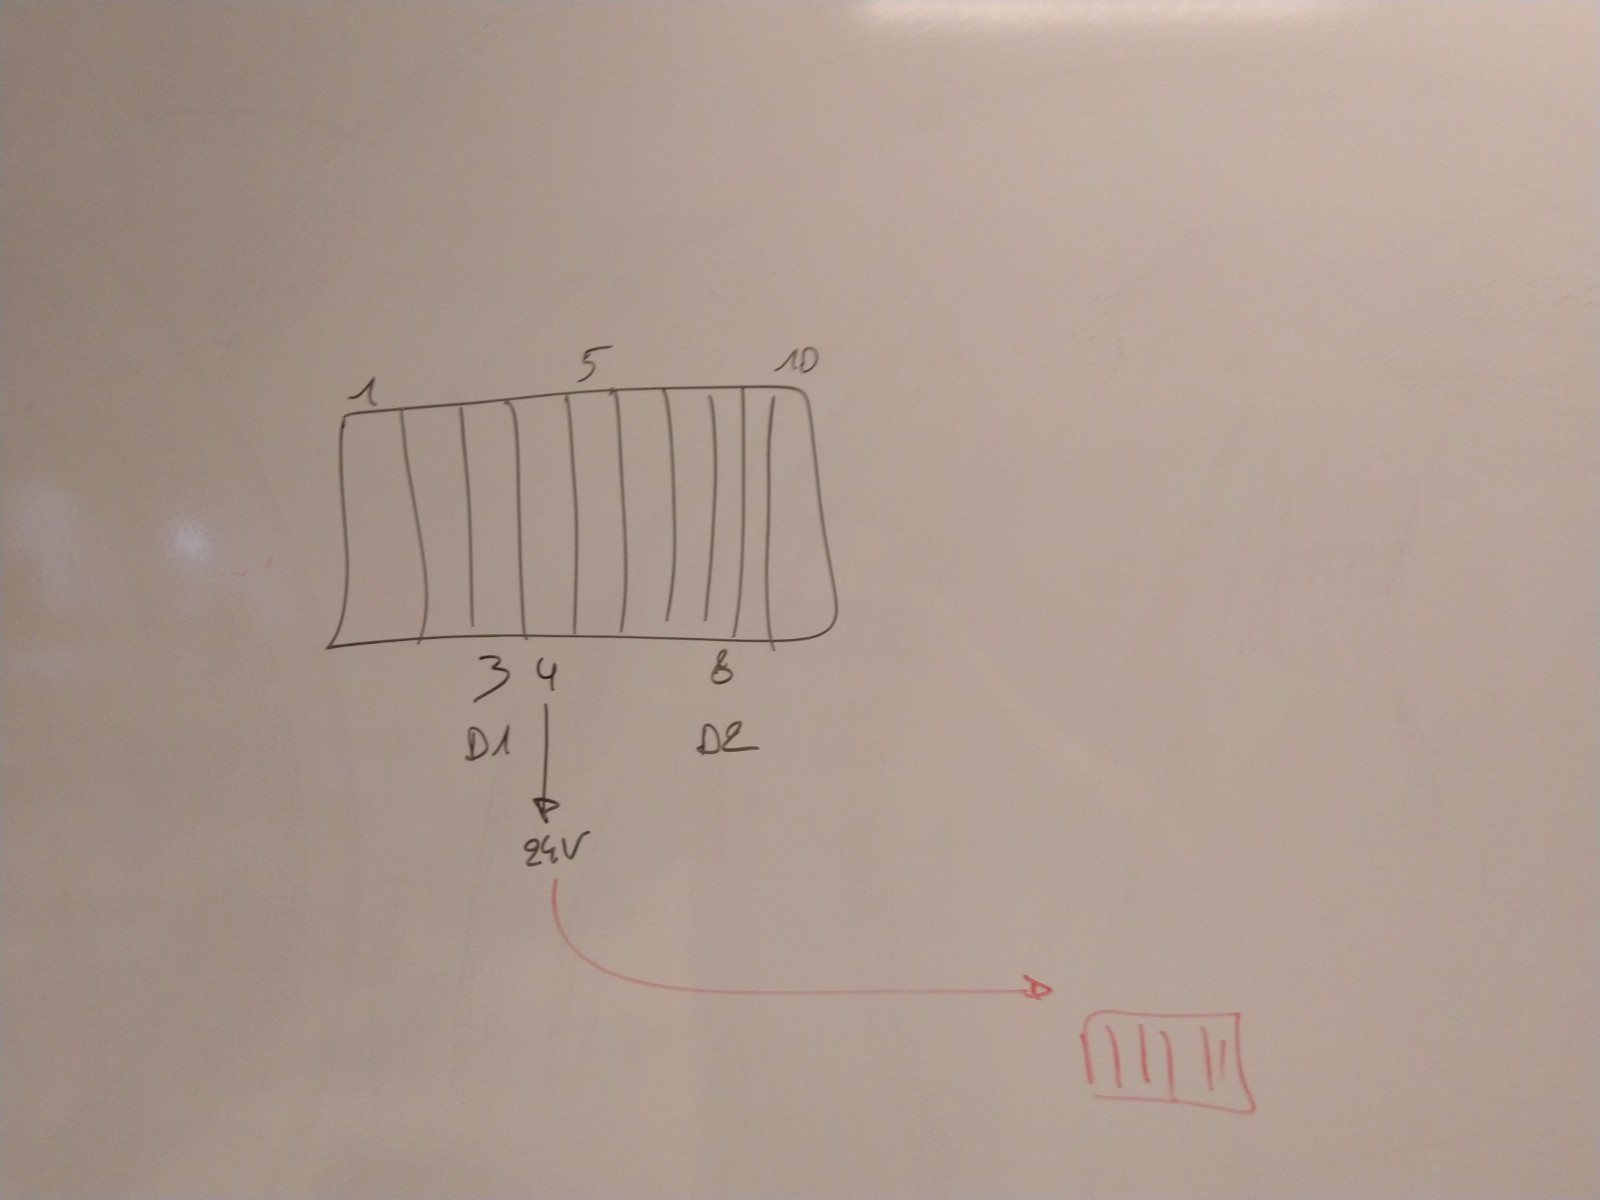 1 5 10
3 4 8
D1 D2
24V